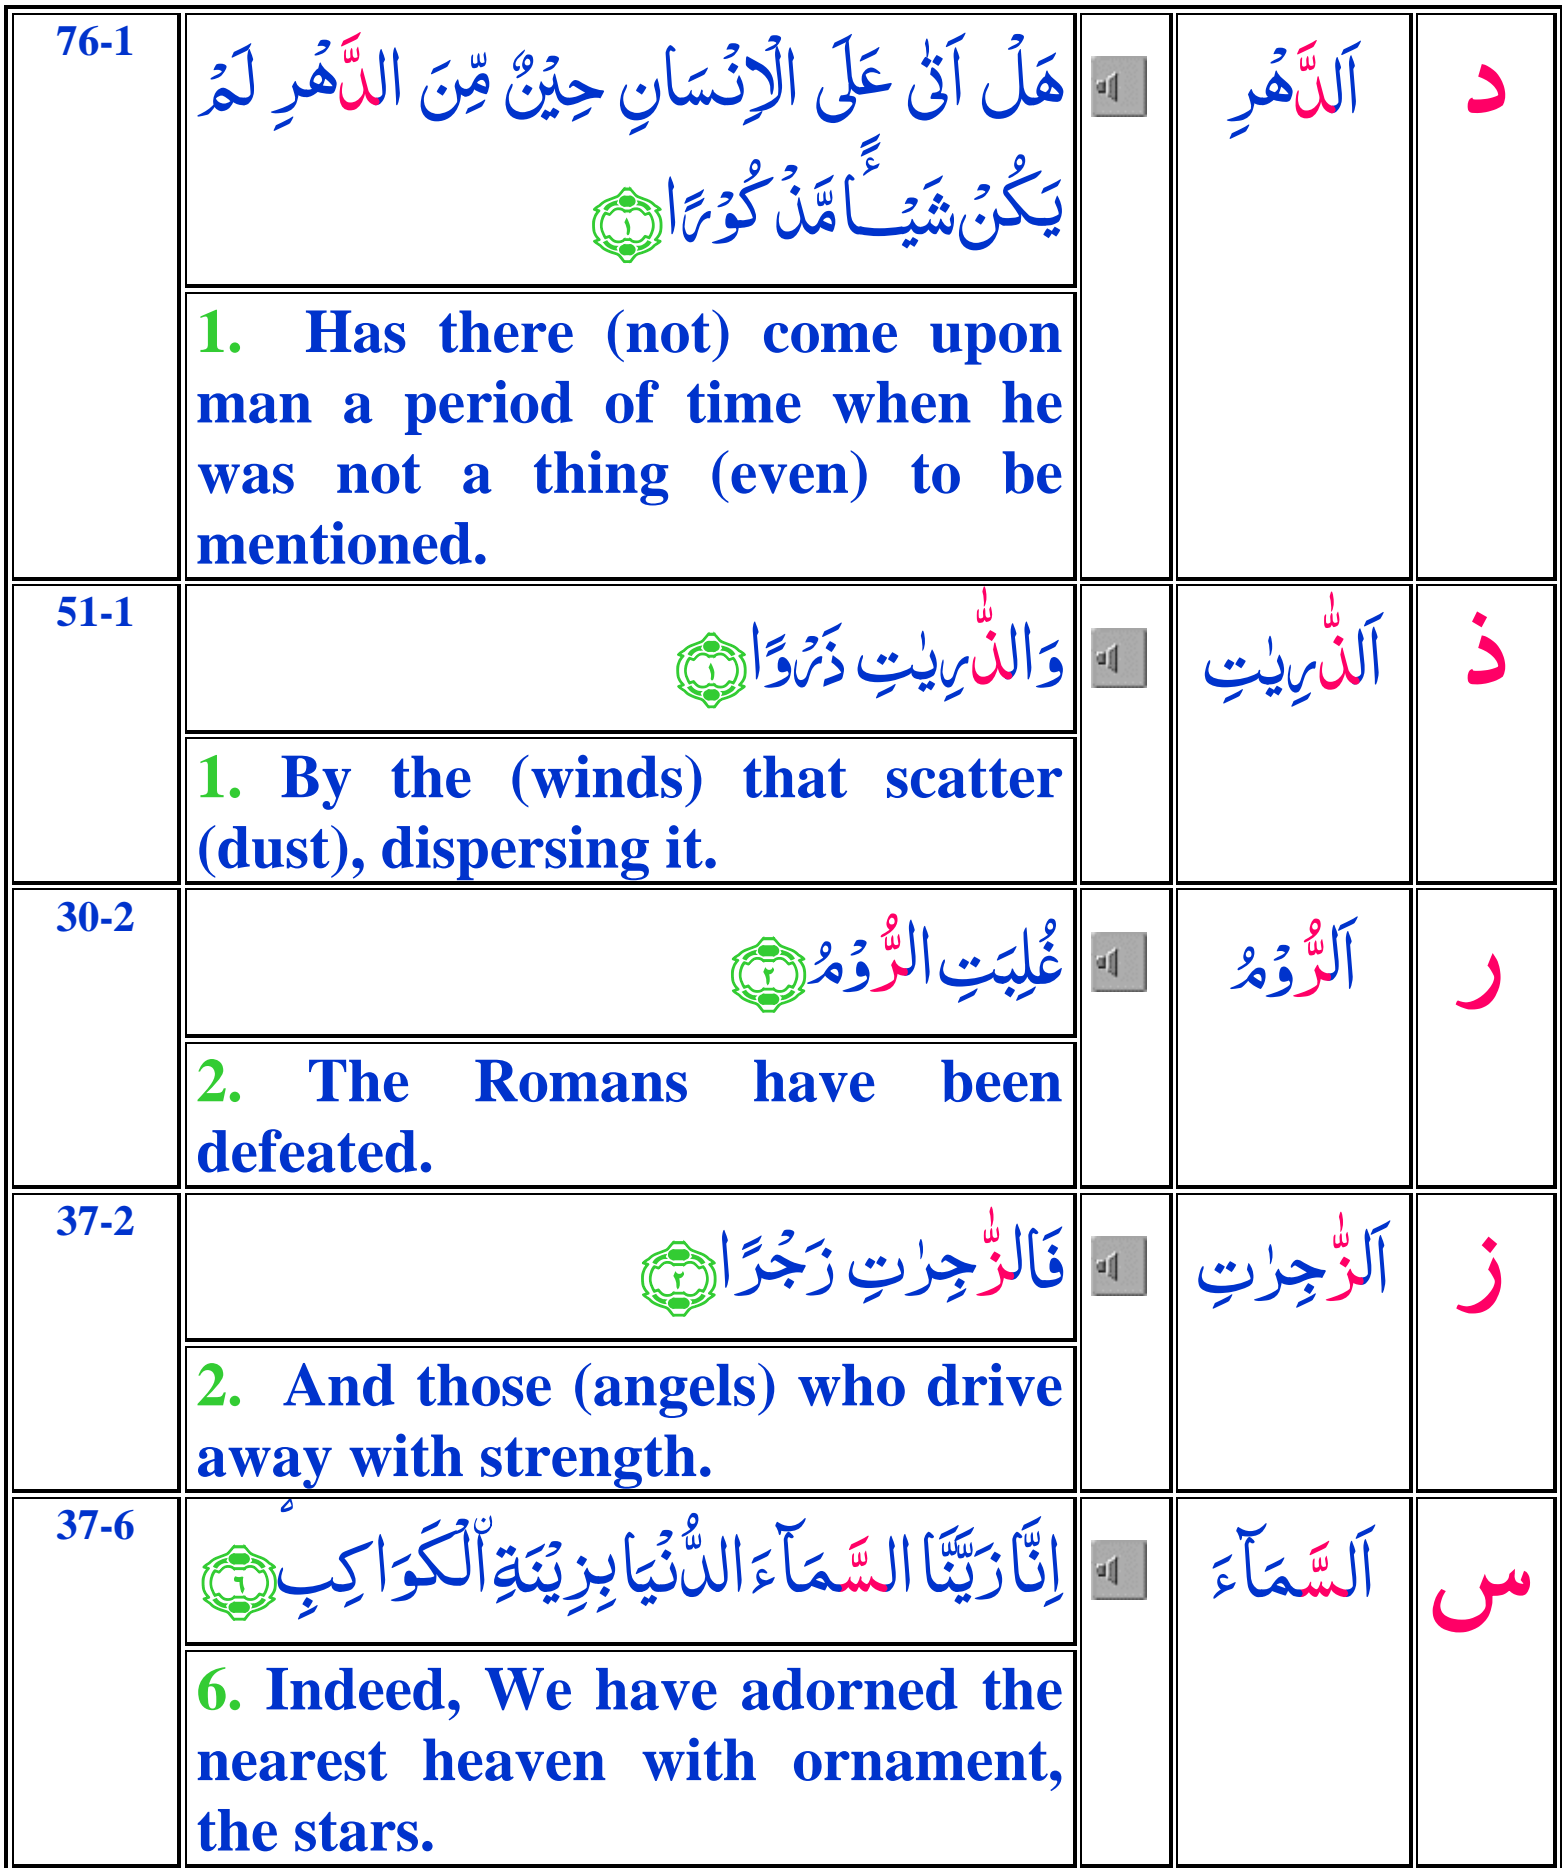 76-1
هَلْ اَتٰى عَلَى الْاِنْسَانِ حِيْنٌ مِّنَ الدَّهْرِ لَمْ
يَكُنْ شَيْـــًٔا مَّذْكُوْرًا ١
اَلدَّهْرِ
د
1. Has there (not) come upon
man a period of time when he
was not a thing (even) to be
mentioned.
51-1
وَالذّٰرِيٰتِ ذَرْوًا ١
اَلذّٰرِيٰتِ
ذ
1. By the (winds) that scatter
(dust), dispersing it.
30-2
غُلِبَتِ الرُّوْمُ ٢
اَلرُّوْمُ
ر
2. The Romans have been
defeated.
37-2
فَالزّٰجِرٰتِ زَجْرًا ٢
اَلزّٰجِرٰتِ
ز
2. And those (angels) who drive
away with strength.
37-6
اِنَّا زَيَّنَّا السَّمَآءَ الدُّنْيَا بِزِيْنَةِ اۨلْكَوَاكِبِۙ ٦
اَلسَّمَآءَ
س
6. Indeed, We have adorned the
nearest heaven with ornament,
the stars.